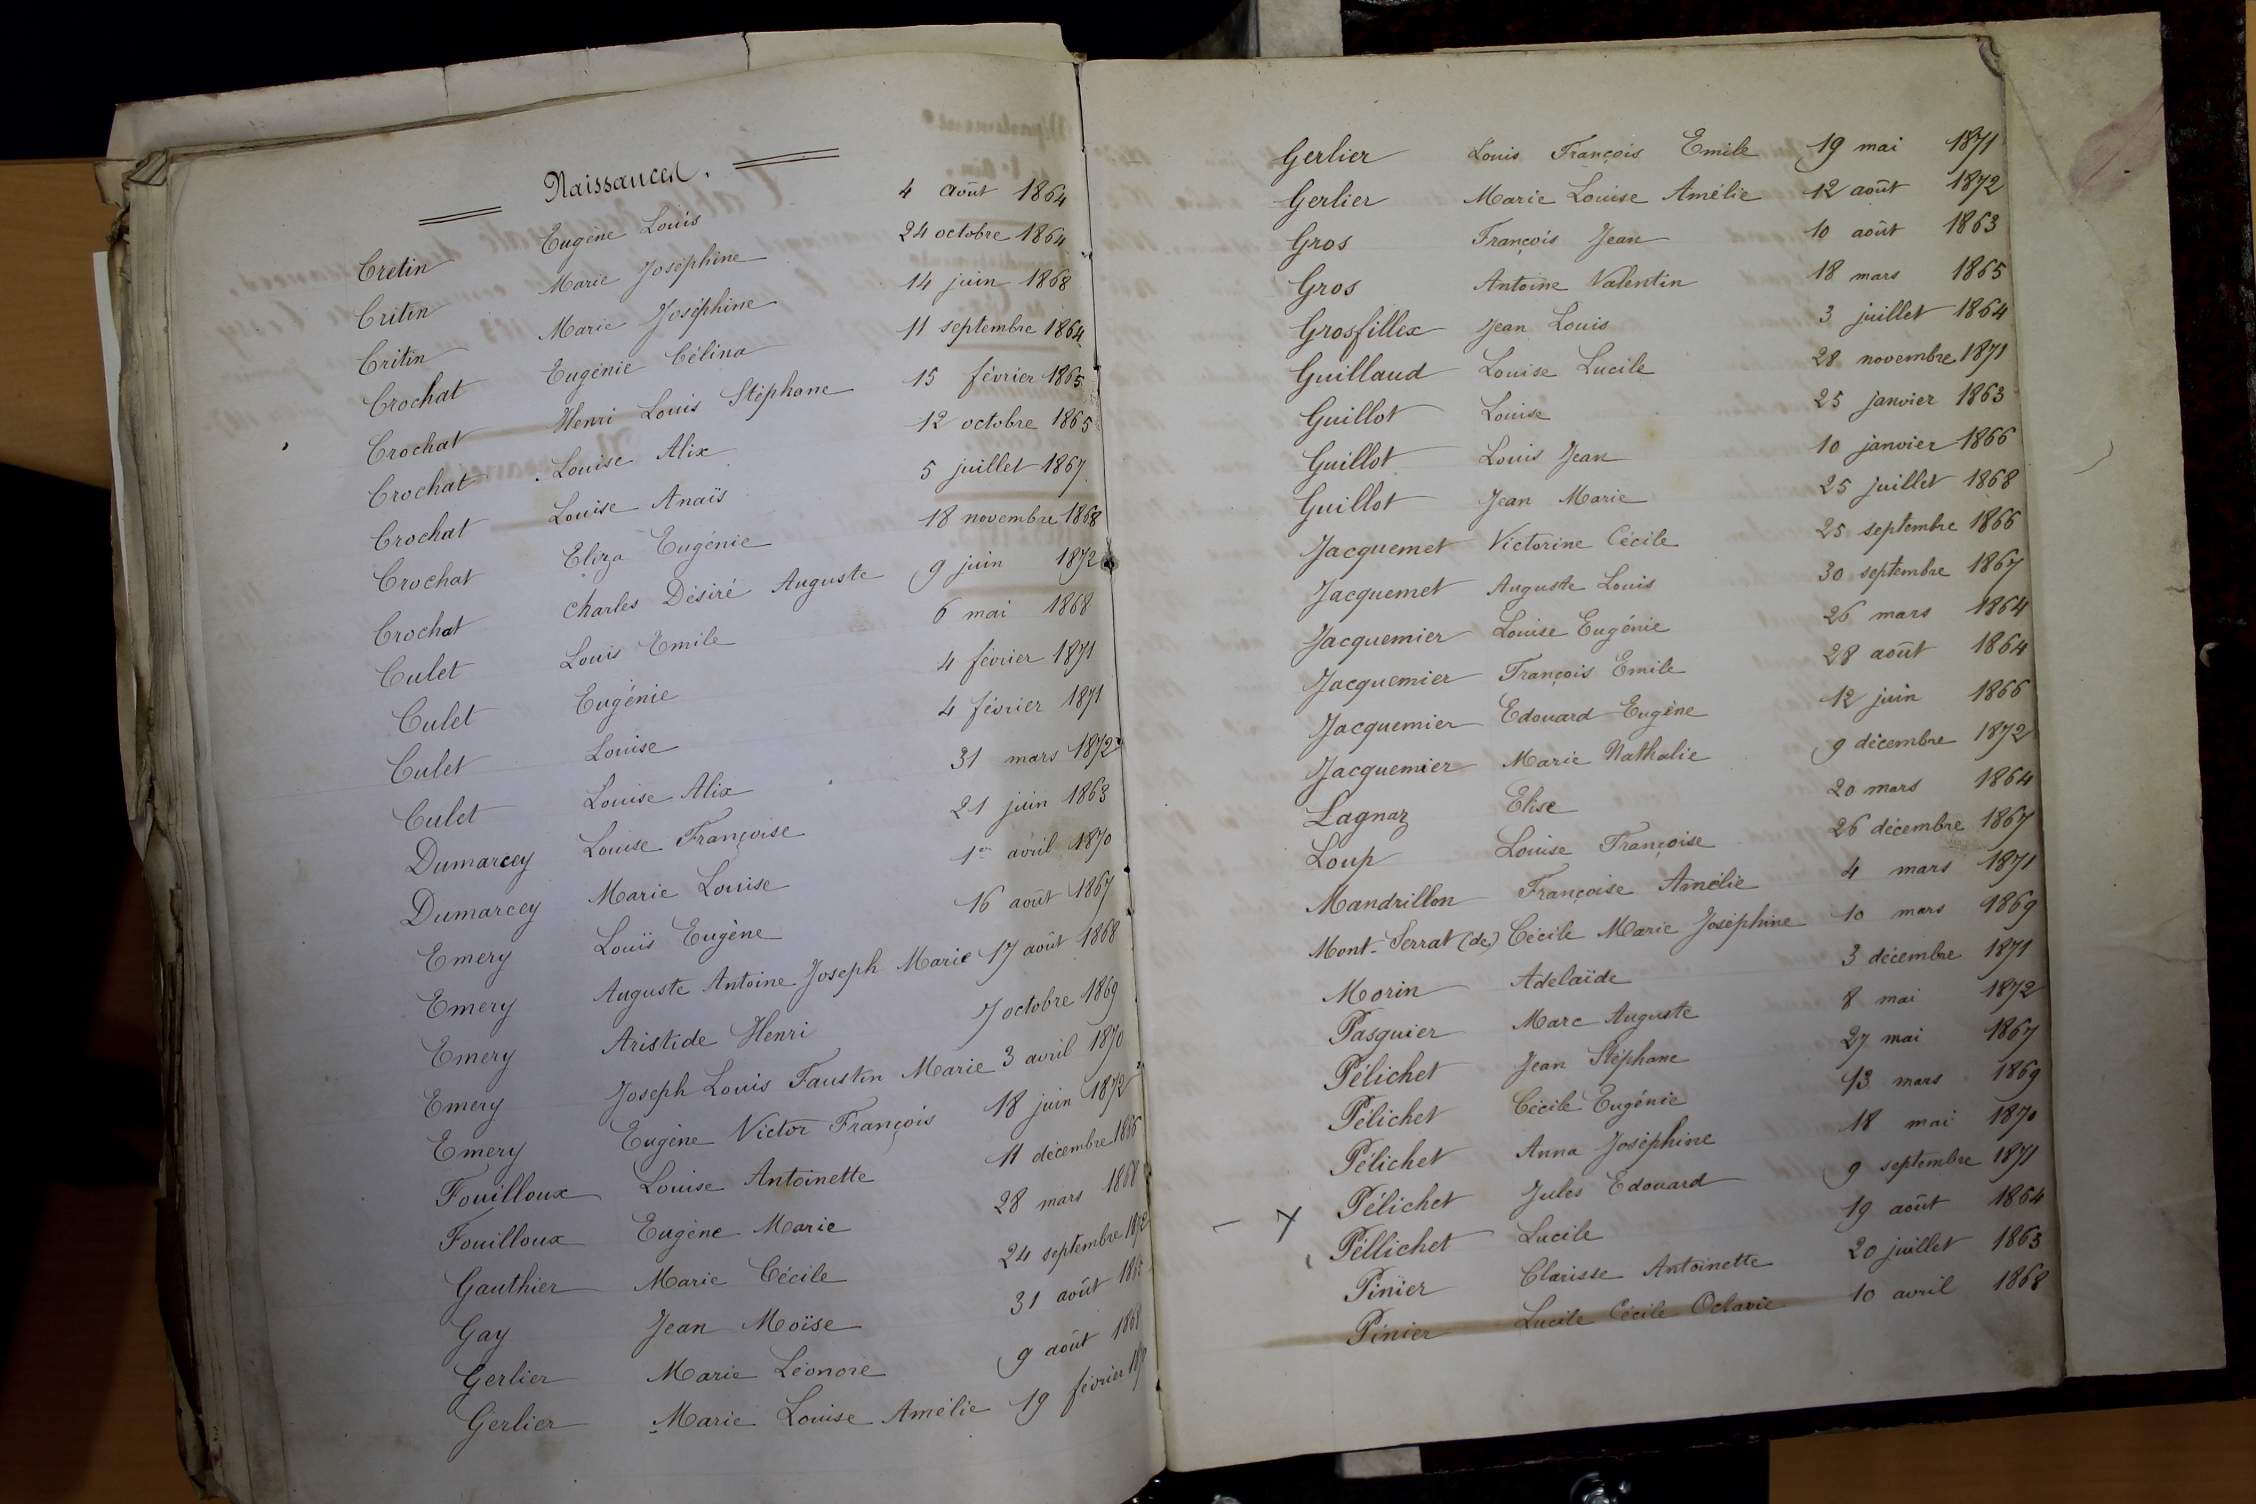 Naissances.
Cretin Eugène Louis 4 août 1864
Critin Marie Joséphine 24 octobre 1864
Critin Marie Joséphine 14 juin 1868
Crochat Eugénie Célina 11 septembre 1864
Crochat Henri Louis Stéphane 15 février 1865
Crochat Louise Alix 12 octobre 1865
Crochat Louise Anaïs 5 juillet 1867
Crochat Eliza Eugénie 18 novembre 1868
Crochat Charles Désiré Auguste 9 juin 1872
Culet Louis Emile 6 mai 1868
Culet Eugénie 4 février 1871
Culet Louise 4 février 1871
Culet Louise Alix 31 mars 1872
Dumarcey Louise Françoise 21 juin 1863
Dumarcey Marie Louise 1er avril 1870
Emery Louis Eugène 16 août 1867
Emery Auguste Antoine Joseph Marie 17 août 1868
Emery Aristide Henri 7 octobre 1869
Emery Joseph Louis Faustin Marie 3 avril 1870
Emery Eugène Victor François 18 juin 1872
Fouilloux Louise Antoinette 11 décembre 1866
Fouilloux Eugène Marie 28 mars 1868
Gauthier Marie Cécile 24 septembre 1872
Gay Jean Moïse 31 août
Gerlier Marie Léonore 9 août 1868
Gerlier Marie Louise Amélie 19 février
Gerlier Louis François Emile 19 mai 1871
Gerlier Marie Louise Amélie 12 août 1872
Gros François Jean 10 août 1863
Gros Antoine Valentin 18 mars 1865
Grosfillex Jean Louis 3 juillet 1864
Guillaud Louise Lucile 28 novembre 1871
Guillot Louise 25 janvier 1863
Guillot Louis Jean 10 janvier 1866
Guillot Jean Marie 25 juillet 1868
Jacquemet Victorine Cécile 25 septembre 1866
Jacquemet Auguste Louis 30 septembre 1867
Jacquemier Louise Eugénie 26 mars 1864
Jacquemier François Emile 28 août 1864
Jacquemier Edouard Eugène 12 juin 1866
Jacquemier Marie Nathalie 9 décembre 1872
Lagnaz Elise 20 mars 1864
Loup Louise Françoise 26 décembre 1867
Mandrillon Françoise Amélie 4 mars 1871
Mont-Serrat (de) Cécile Marie Joséphine 10 mars 1869
Morin Adelaïde 3 décembre 1871
Pasquier Marc Auguste 8 mai 1872
Pélichet Jean Stéphane 27 mai 1867
Pélichet Cécile Eugénie 13 mars 1869
Pélichet Anna Joséphine 18 mai 1870
Pélichet Jules Edouard 9 septembre 1871
Péllichet Lucile 19 août 1864
Pinier Clarisse Antoinette 20 juillet 1863
Pinier Lucile Cécile Octavie 10 avril 1868